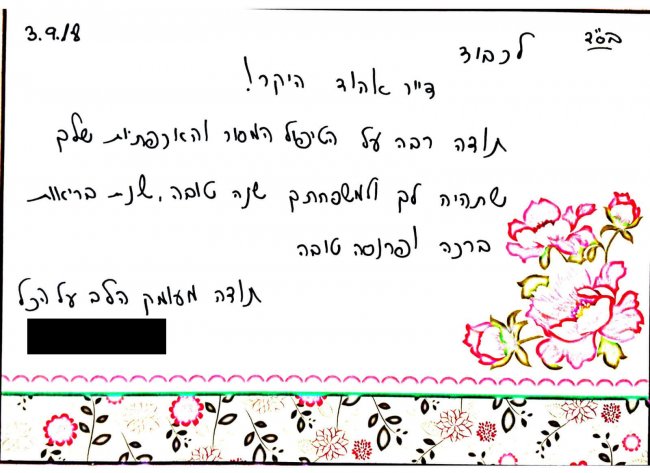 בס"ד
3.9.18
לכבוד
ד"ר אהוד היקר!
תודה רבה על הטיפול המסור והאכפתיות שלך
שתהיה לך ולמשפחתך שנה טובה, שנת בריאות
ברכה ופרנסה טובה
תודה מעומק הלב על הכל